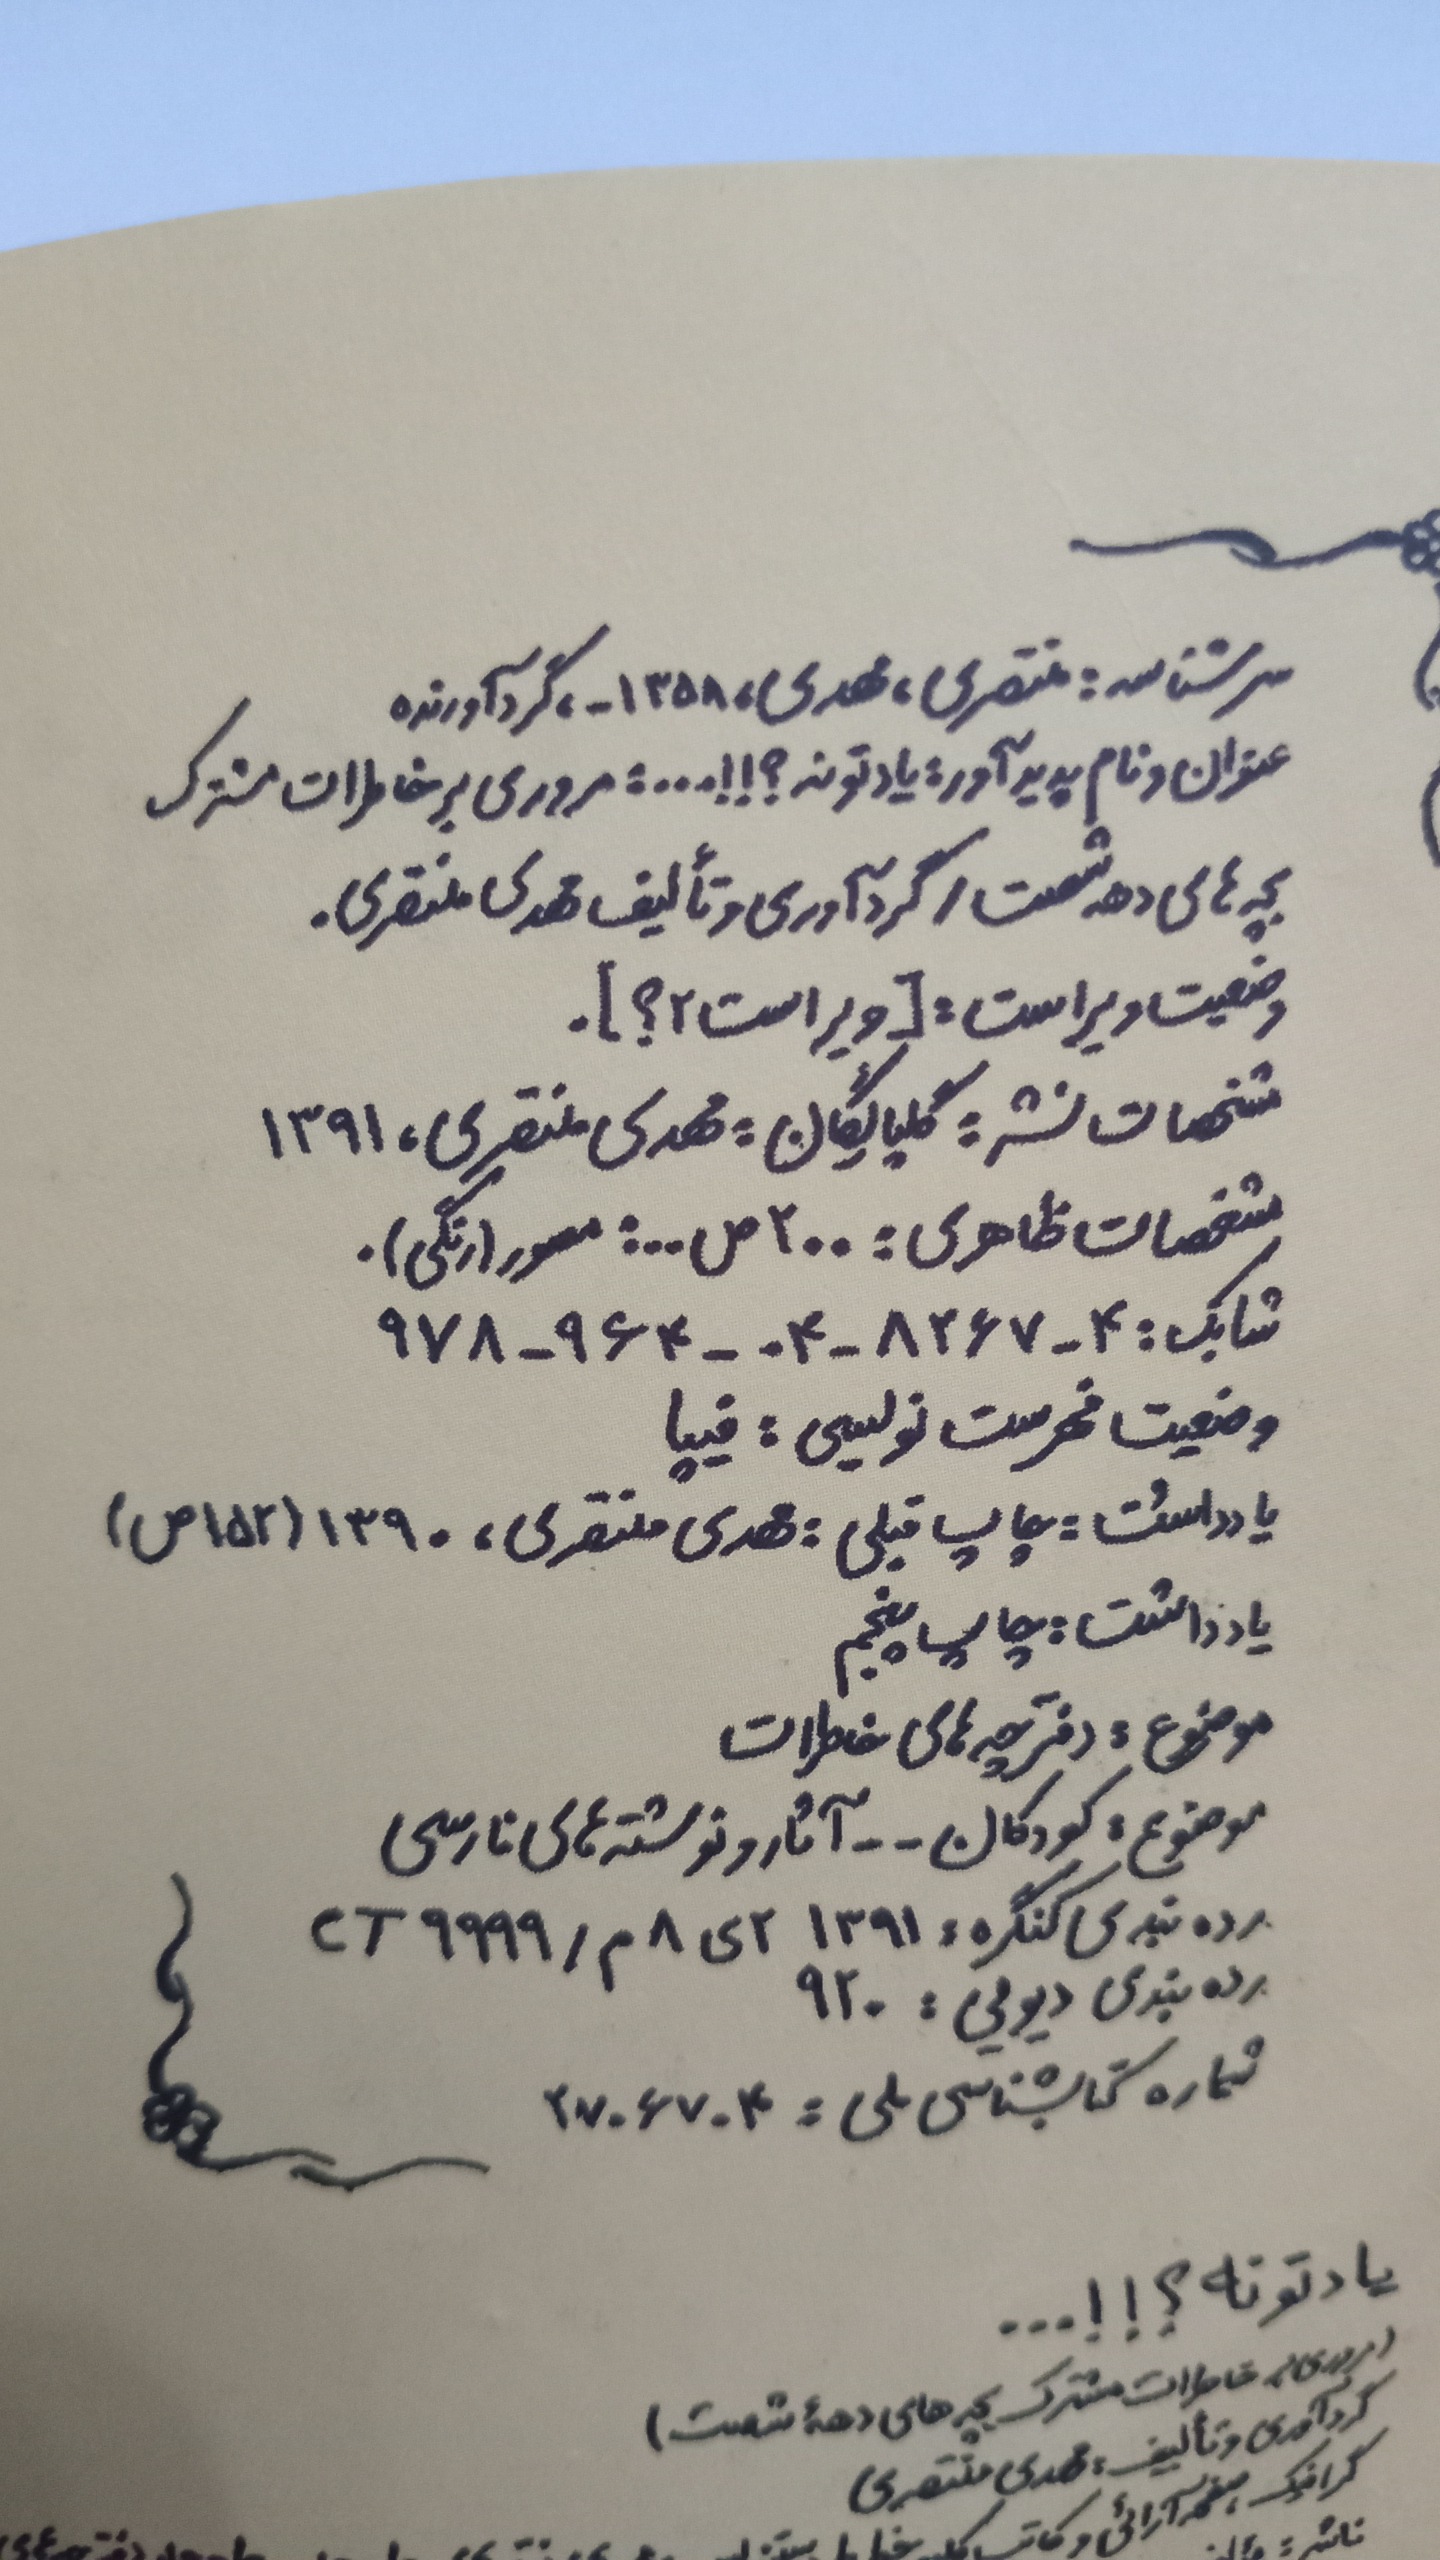 سرشناسه : منتصری ، مهدی ، ۱۳۵۸ - ، گردآورنده
عنوان و نام پدیدآور : یادتونه ؟!!... : مروری بر خاطرات مشترک
بچه های دهه شصت / گردآوری و تألیف مهدی منتصری .
وضعیت ویراست : [ ویراست ۲ ؟ ] .
مشخصات نشر : گلپایگان : مهدی منتصری ، ۱۳۹۱
مشخصات ظاهری : ۲۰۰ ص... : مصور (رنگی) .
شابک : ۹۷۸-۹۶۴-۰۴-۸۲۶۷-۴
وضعیت فهرست نویسی : فیپا
یادداشت : چاپ قبلی : مهدی منتصری ، ۱۳۹۰ (۱۵۲ ص)
یادداشت : چاپ پنجم
موضوع : دفترچه های خاطرات
موضوع : کودکان -- آثار و نوشته های فارسی
رده بندی کنگره : ۱۳۹۱ ۲ی ۸م / CT ۹۹۹۹
رده بندی دیویی : ۹۲۰
شماره کتابشناسی ملی : ۲۷۰۶۷۰۴
یادتونه ؟!!...
(مروری بر خاطرات مشترک بچه های دههٔ شصت)
گردآوری و تألیف : مهدی منتصری
گرافیک ، صفحه آرائی و کاتب
ناشر :